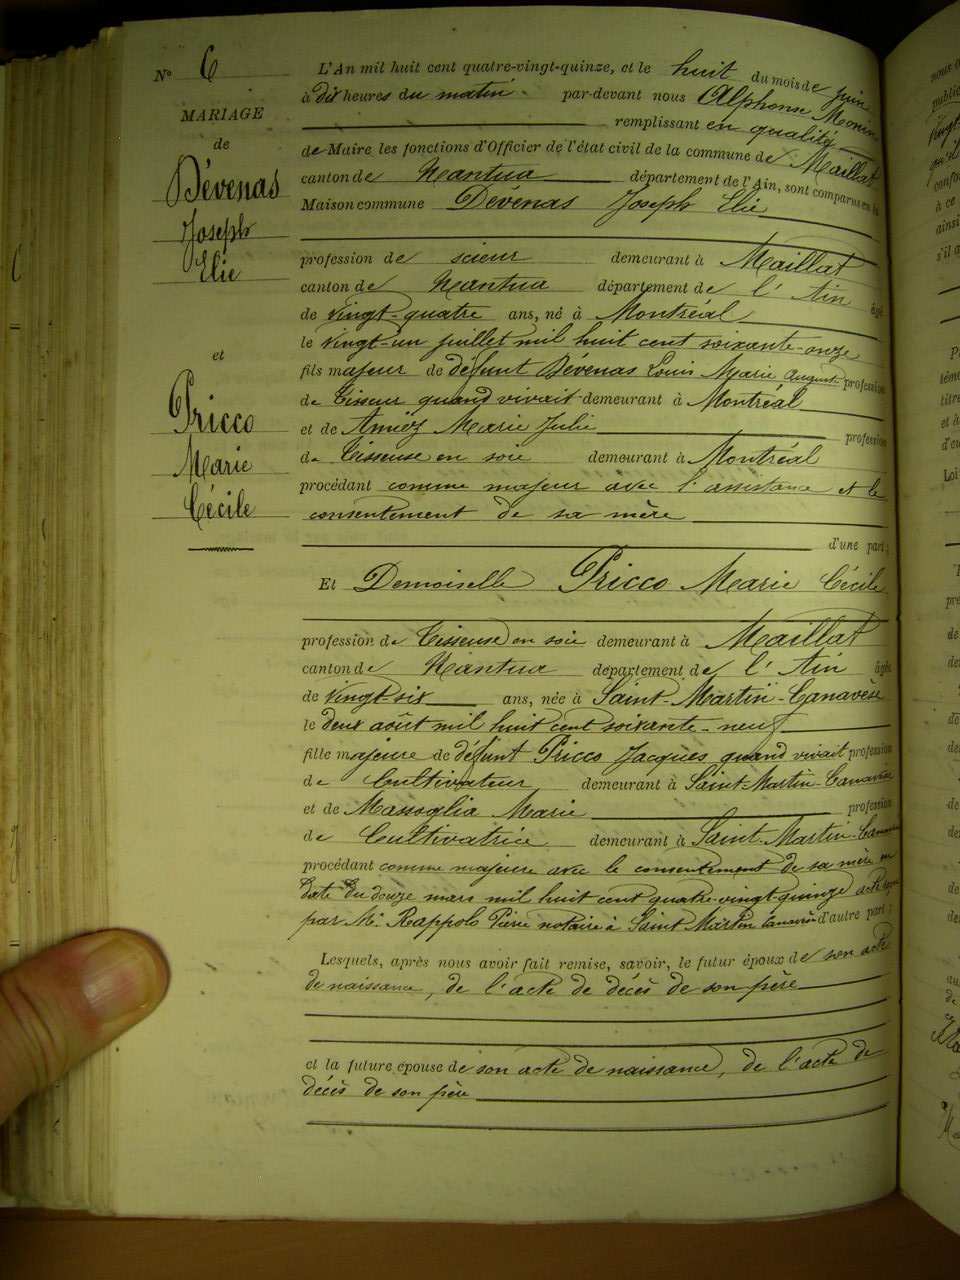 N° 6
MARIAGE
de
Dévenas
Joseph
Elie
et
Pricco
Marie
Cécile
L'An mil huit cent quatre-vingt-quinze, et le huit du mois de juin
à dix heures du matin par-devant nous Alphonse Monin
remplissant en qualité
de Maire les fonctions d'Officier de l'état civil de la commune de Maillat
canton de Nantua département de l'Ain, sont comparus en la
Maison commune Dévenas Joseph Elie
profession de scieur demeurant à Maillat
canton de Nantua département de l'Ain âgé
de vingt-quatre ans, né à Montréal
le vingt-un juillet mil huit cent soixante-onze
fils majeur de défunt Dévenas Louis Marie August profession
de Tisseur quand vivait demeurant à Montréal
et de Amiez Marie Julie profession
de Tisseuse en soie demeurant à Montréal
procédant comme majeur avec l'assistance et le
consentement de sa mère
d'une part;
Et Demoiselle Pricco Marie Cécile
profession de Tisseuse en soie demeurant à Maillat
canton de Nantua département de l'Ain âgée
de vingt-six ans, née à Saint-Martin-Canavèse
le deux août mil huit cent soixante-neuf
fille majeure de défunt Pricco Jacques quand vivait profession
de Cultivateur demeurant à Saint-Martin-Canavèse
et de Massoglia Marie profession
de Cultivatrice demeurant à Saint-Martin-
procédant comme majeure avec le consentement de sa mère en
date du douze mars mil huit cent quatre-vingt-quinze acte
par Me Rappolo Pierre notaire à Saint Martin d'autre part;
Lesquels, après nous avoir fait remise, savoir, le futur époux de son acte
de naissance, de l'acte de décès de son père
et la future épouse de son acte de naissance, de l'acte de
décès de son père